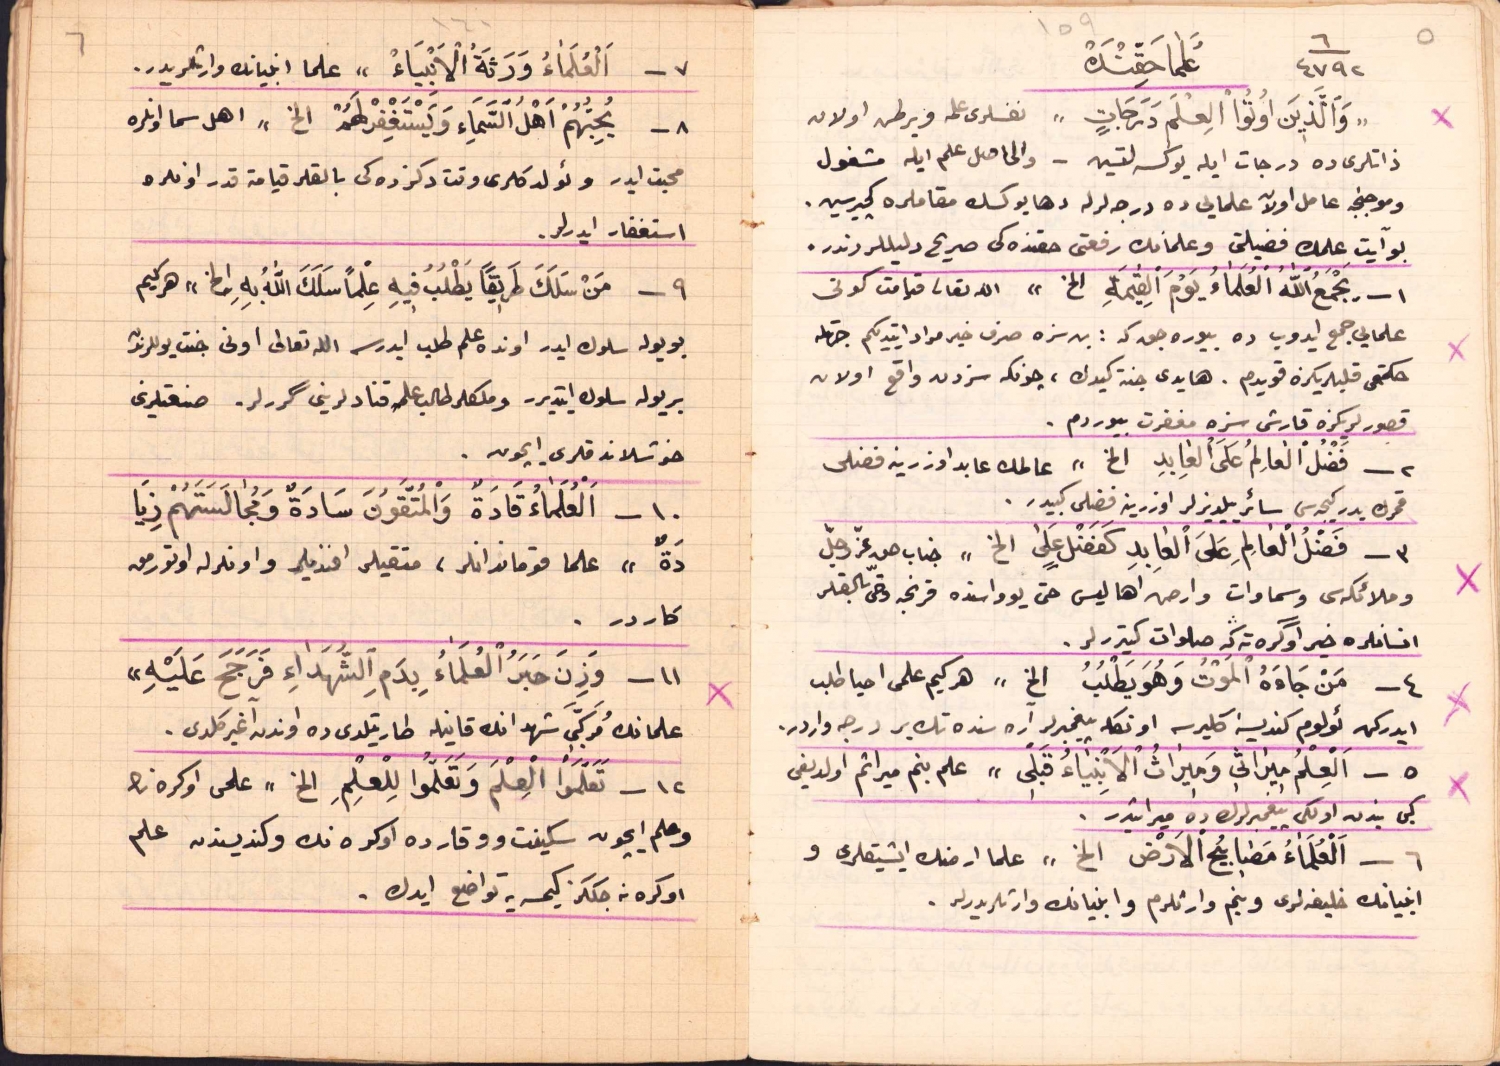 ٥
١٥٩
٦
٤٧٩٢
عُلَمَا حَقِّنْدَهْ
« وَالَّذِينَ اُوتُوا الْعِلْمَ دَرَجَاتٍ » نفسلرى علمه ويرلمش اولان
ذاتلرى ده درجات ايله يوكسلتسين – والحاصل علم ايله مشغول
وموجبنجه عامل اولان علمايى ده درجه لرله دها يوكسك مقاملره كچيرسين .
بو آيت علمك فضيلتى وعلمانك رفعتى حقنده كى صريح دليللردندر .
١ – يَجْمَعُ اللّٰهُ الْعُلَمَاءُ يَوْمَ الْقِيٰمَةِ الخ » الله تعالى قيامت كونى
علمايى جمع ايدوب ده بيوره جق كه : بن سزه صرف خير مراد ايتديكم جهتله
حكمتمى قلبلريكزه قويدم . هايدى جنته كيدك ، چونكه سزدن واقع اولان
قصورلريكزه قارشى سزه مغفرت بيوردم .
٢ – فَضْلُ الْعَالِمُ عَلَى الْعَابِدِ الخ » عالمك عابد اوزرينه فضلى
قمرك بدر كيجه سى سائر ييلديزلر اوزرينه فضلى كبيدر .
٣ – فَضْلُ الْعَالِمِ عَلَى الْعَابِدِ كَفَضْلِى عَلَى الخ » جناب حق عزّ وجلّ
وملائكه سى وسماوات وارض اهاليسى حتى يوواسنده قرنجه وحتى بالقلر
انسانلره خير اوگره تنه صلوات كتيررلر .
٤ – مَنْ جَاءَهُ الْمَوْتُ وَهُوَ يَطْلُبُ الخ » هر كيم علمى احيا طلب
ايدركن ئولوم كنديسنه كليرسه اونكله پيغمبرلر آره سنده تك بر درجه واردر .
٥ – اَلْعِلْمُ مِيرَاثِى وَمِيرَاثُ الْاَنْبِيَاءُ قَبْلِى » علم بنم ميراثم اولديغى
كبى بندن اولكى پيغمبرلرك ده ميراثيدر .
٦ – اَلْعُلَمَاءُ مَصَابِيحُ الْاَرْضِ الخ » علما ارضك ايشيقلرى و
انبيانك خليفه لرى وبنم وارثلرم وانبيانك وارثلريدرلر .
٦
١٦٠
٧ – اَلْعُلَمَاءُ وَرَثَةُ الْاَنْبِيَاءْ » علما انبيانك وارثلريدر .
٨ – يُحِبُّهُمْ اَهْلُ السَّمَاءِ وَيَسْتَغْفِرْ لَهُمْ الخ » اهل سما اونلره
محبت ايدر و ئولدكلرى وقت دكزده كى بالقلر قيامته قدر اونلره
استغفار ايدرلر .
٩ – مَنْ سَلَكَ طَرِيقًا يَطْلُبُ فِيهِ عِلْمًا سَلَكَ اللّٰهُ بِهِ الخ » هر كيم
بويوله سلوك ايدر اونده علم طلب ايدرسه الله تعالى اونى جنت يوللرندن
بر يوله سلوك ايتديرر وملكلر طالب علمه قنادلرينى گررلر . صنعتلرينى
خوشلاندقلرى ايچون .
١٠ – اَلْعُلَمَاءُ قَادَةٌ وَالْمُتَّقُونَ سَادَةٌ وَمُجَالَسَتَهُمْ زِيَا
دَةٌ » علما قومانداننلر ، متقيلر افنديلر و اونلرله اوتورمق
كاردر .
١١ – وَزِنَ حَبَرُ الْعُلَمَاءُ بِدَمِ الشُّهَدَاءِ فَرَجَحَ عَلَيْهِ »
علمانك مركبى شهدانك قانيله طارتيلدى ده اوندن آغير كلدى .
١٢ – تَعَلَّمُوا الْعِلْمَ وَتَعَلَّمُوا لِلْعِلْمِ الخ » علمى اوكره نك
وعلم ايچون سكينت و وقار ده اوكره نك وكنديسندن علم
اوكره نه جككز كيمسه يه تواضع ايدك .